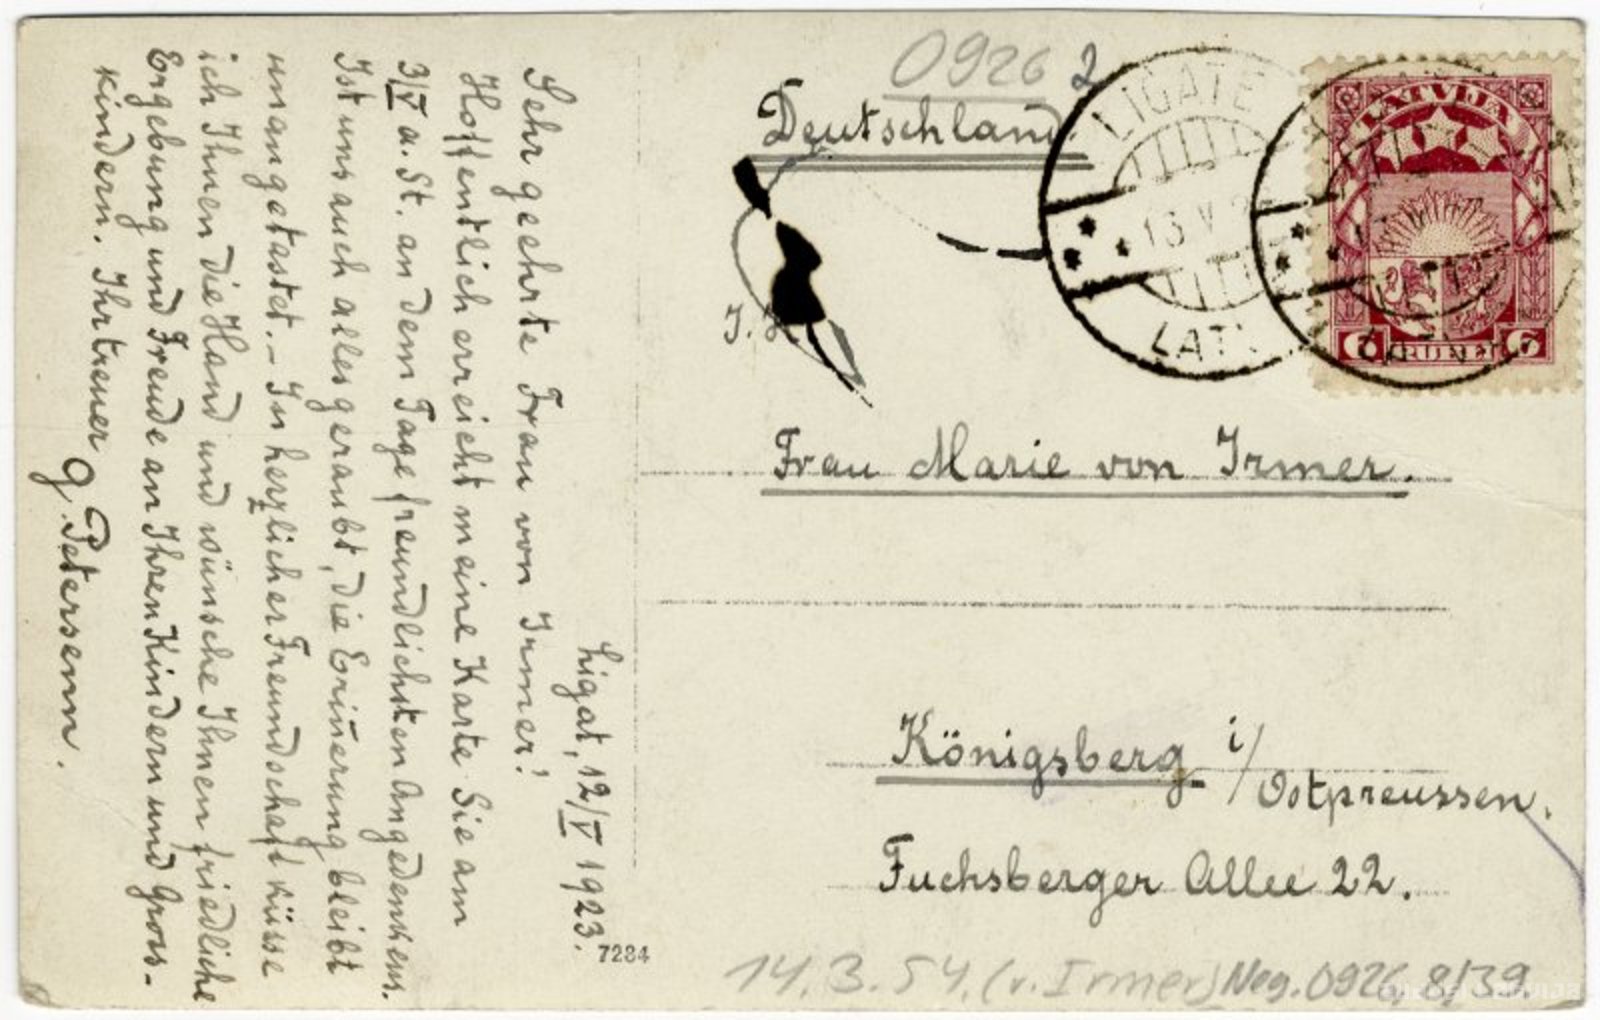 Ligat, 12/V 1923.
Sehr geehrte Frau von Irmer!
Hoffentlich erreicht meine Karte Sie am
3/V a. St. an dem Tage freundlichsten Angedenkens.
Ist uns auch alles geraubt, die Erinerung bleibt
unangetastet. – In herzlicher Freundschaft küsse
ich Ihnen die Hand und wünsche Ihnen friedliche
Ergebung und Freude an Ihren Kindern und Gross-
kindern. Ihr treuer
G. Petersenn.
7284
0926 2
Deutschland
LIGATE
13 V
LATV
LATVIJA
6 RUBLI 6
Frau Marie von Irmer.
Königsberg i/
Ostpreussen.
Fuchsberger Allee 22.
14.3.54. (v. Irmer) Neg. 0926, 8/39